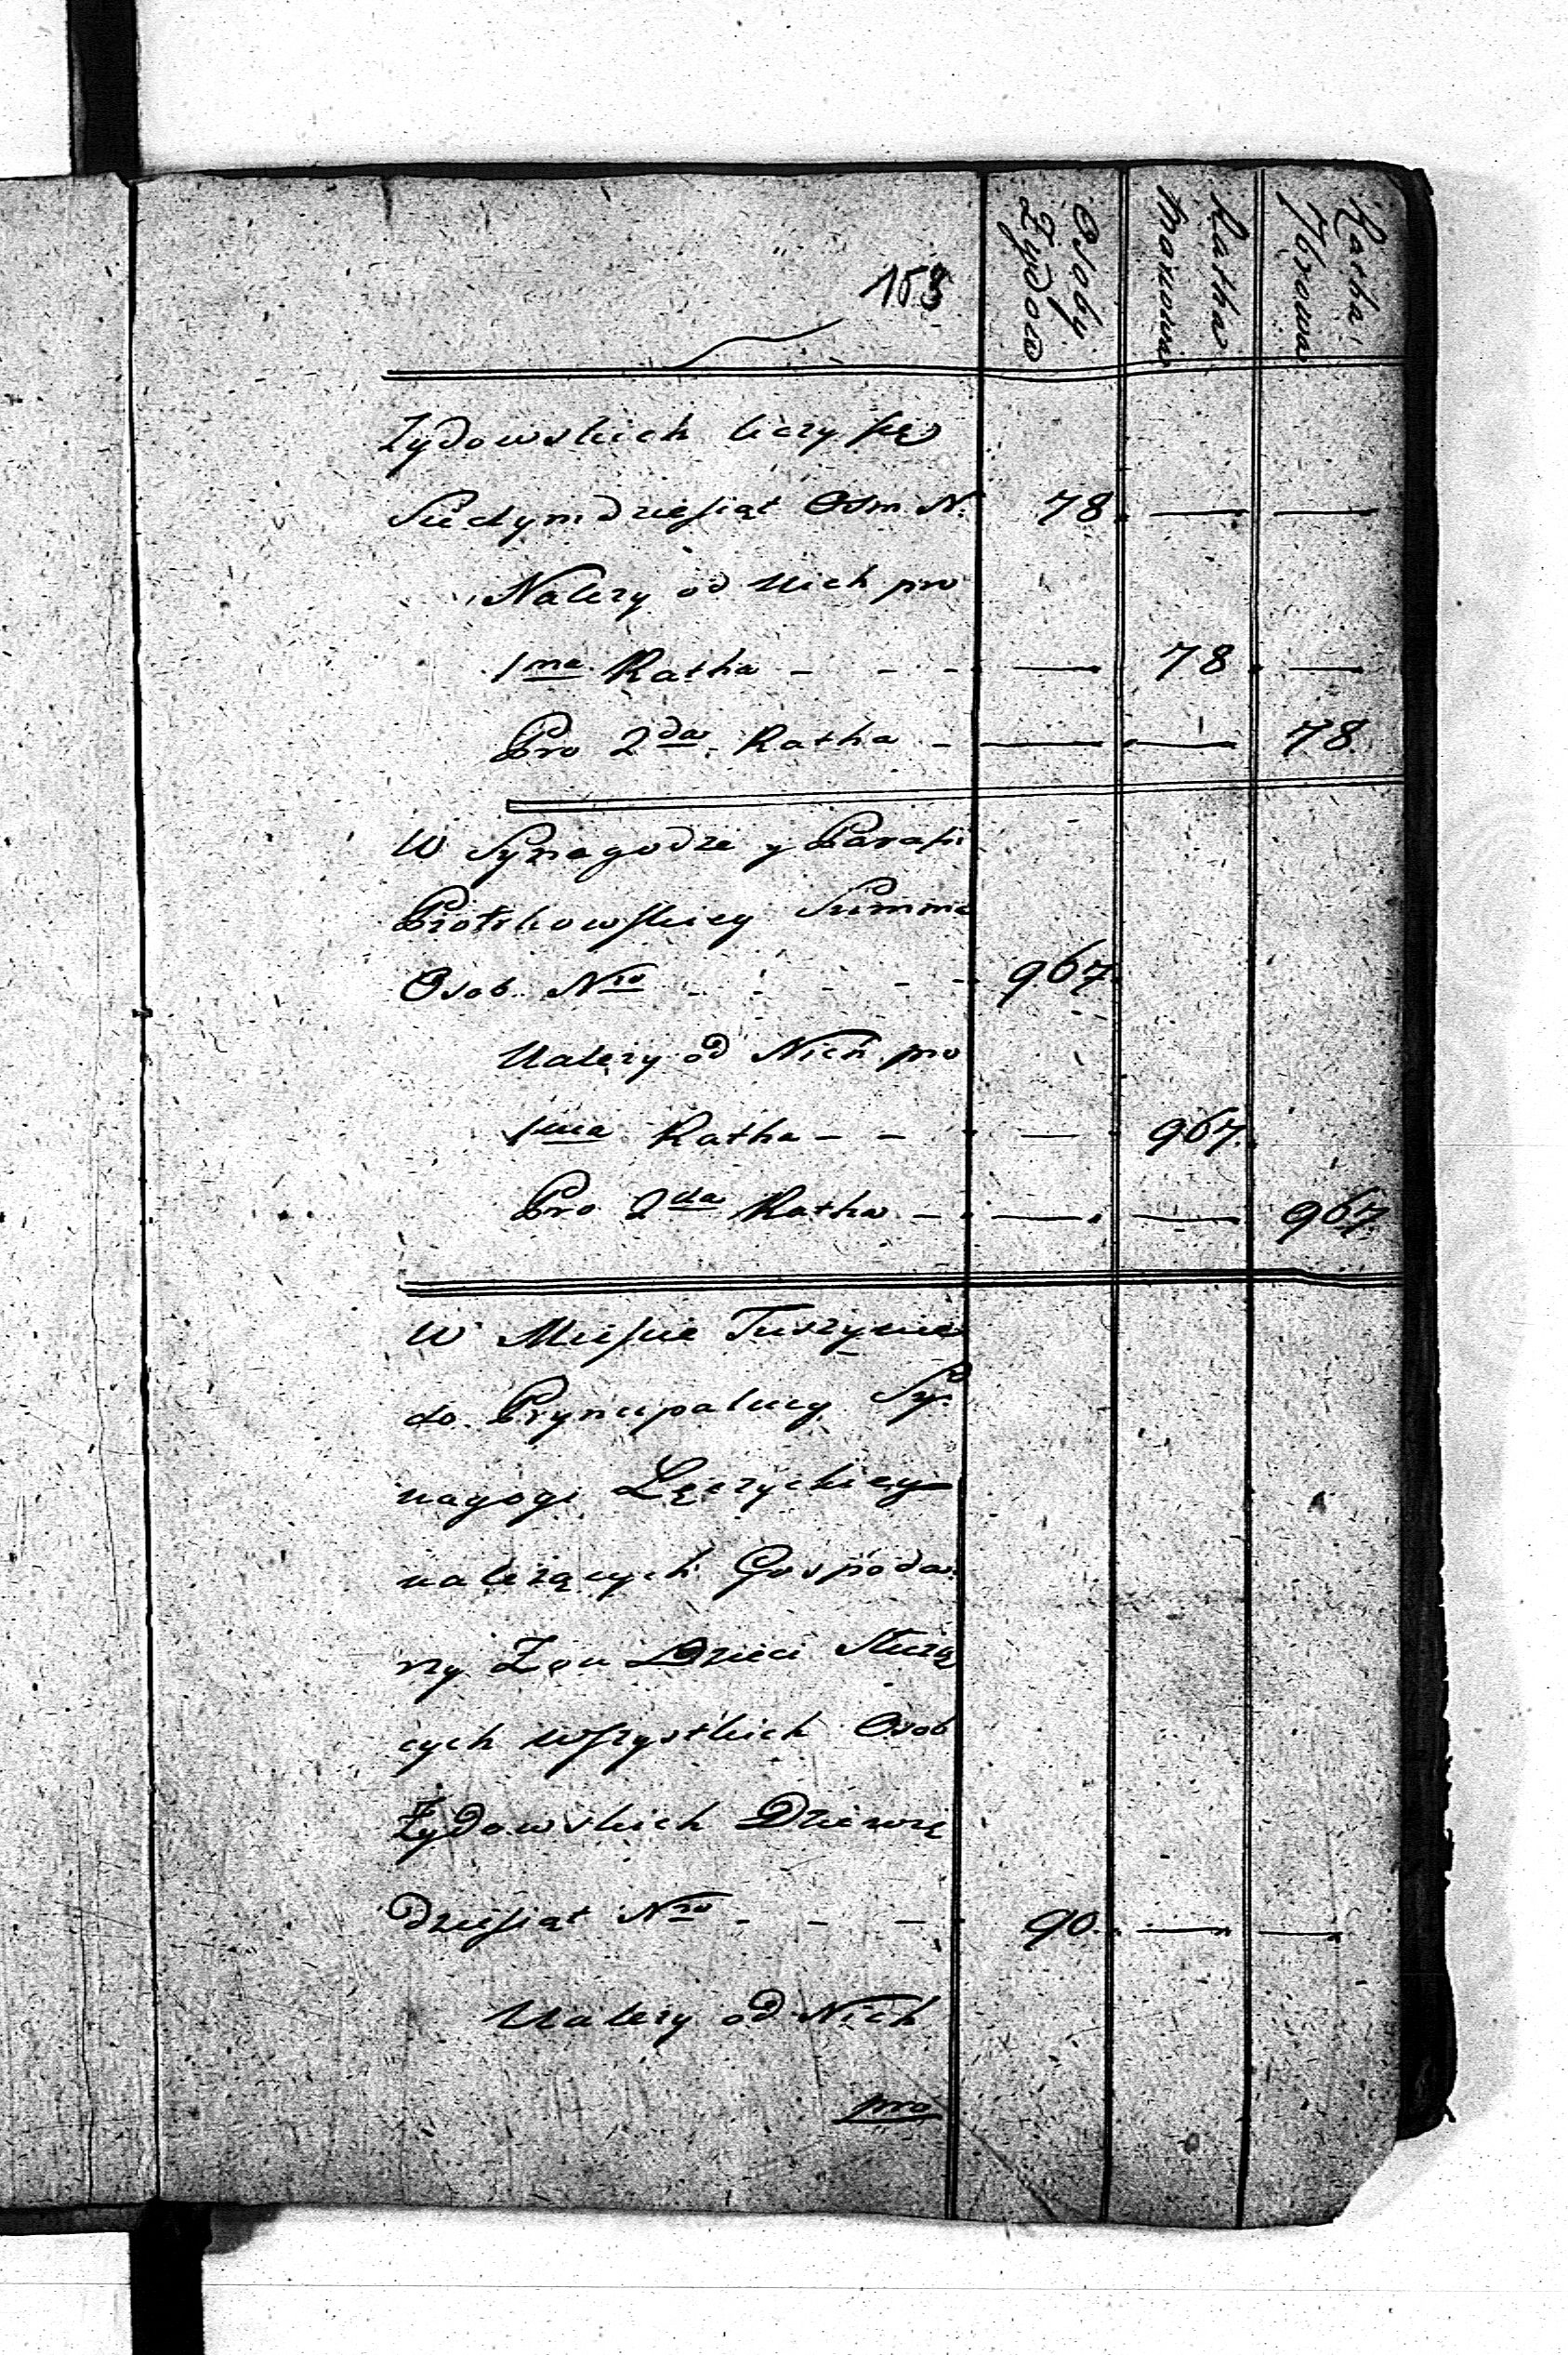 158
Osoby Żydow
Ratha Marcowa
Ratha 7browa
Zydowskich liczy się
Siedymdziesiąt Osm N. 78. — —
Nalezy od Nich pro
1ma Ratha - - - — 78. —
Pro 2da Ratha - — — 78
W Synagodze y Parafii
Piotrkowskiey Summa
Osob Nro - - - - - 967.
Nalezy od Nich pro
1ma Ratha - - - — 967.
Pro 2da Ratha - — — 967
W Mieście Tuszynie
do Pryncypalney Sy-
nagogi Łęczyckiey
nalezących Gospoda-
rzy Zon Dzieci Słuzą
cych wszystkich Osob
Żydowskich Dziewię
dziesiąt Nro - - - 90. — —
Nalezy od Nich
pro